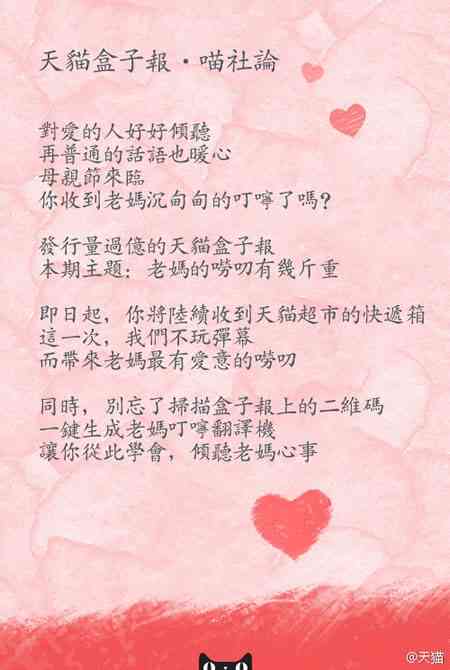 天貓盒子報·喵社論
對愛的人好好傾聽
再普通的話語也暖心
母親節來臨
你收到老媽沉甸甸的叮嚀了嗎？
發行量過億的天貓盒子報
本期主題：老媽的嘮叨有幾斤重
即日起，你將陸續收到天貓超市的快遞箱
這一次，我們不玩彈幕
而帶來老媽最有愛意的嘮叨
同時，別忘了掃描盒子報上的二維碼
一鍵生成老媽叮嚀翻譯機
讓你從此學會，傾聽老媽心事
@天猫